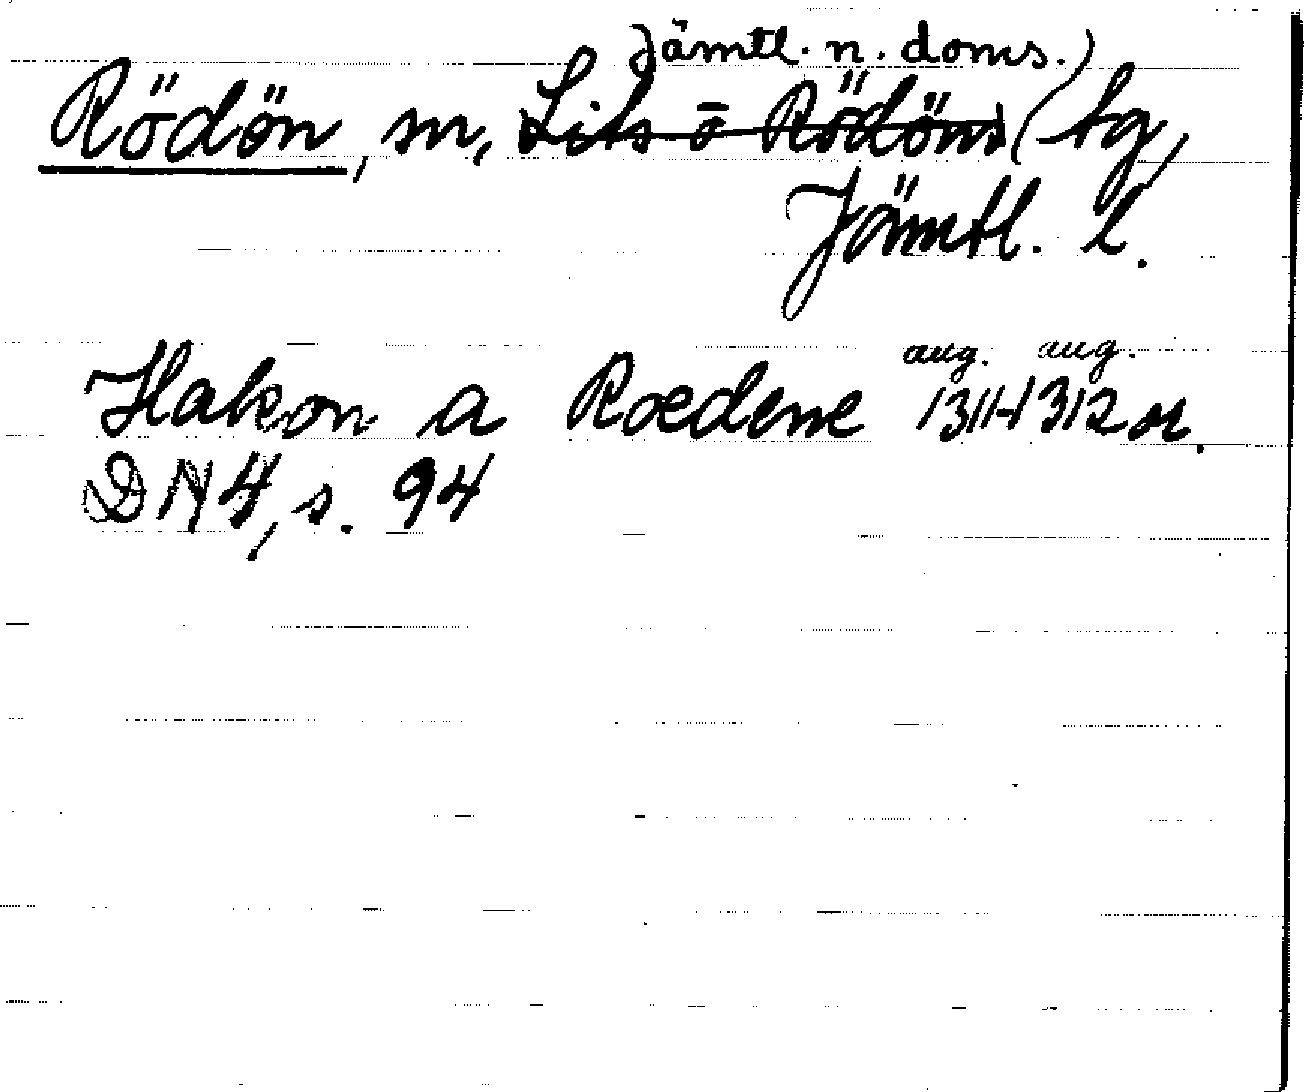 Jämtl. n. doms.)
Rödön, sn, Lits o Rödöns (tg,
Jämtl. l.
aug. aug.
Hakon a Roedene 1311-1312 or.
DN 4, s. 94